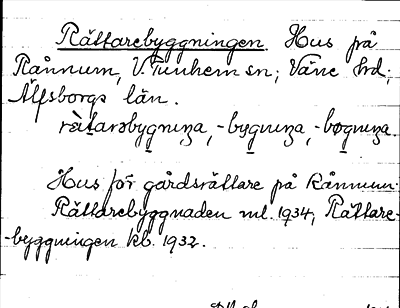 Rättarebyggningen. Hus på
Rånnum, V. Tunhem sn; Väne hrd;
Älfsborgs län.
rè
Hus för gårdsrättare på Rånnum.
Rättarebyggnaden ml. 1934; Rättare-
-byggningen kb. 1932.